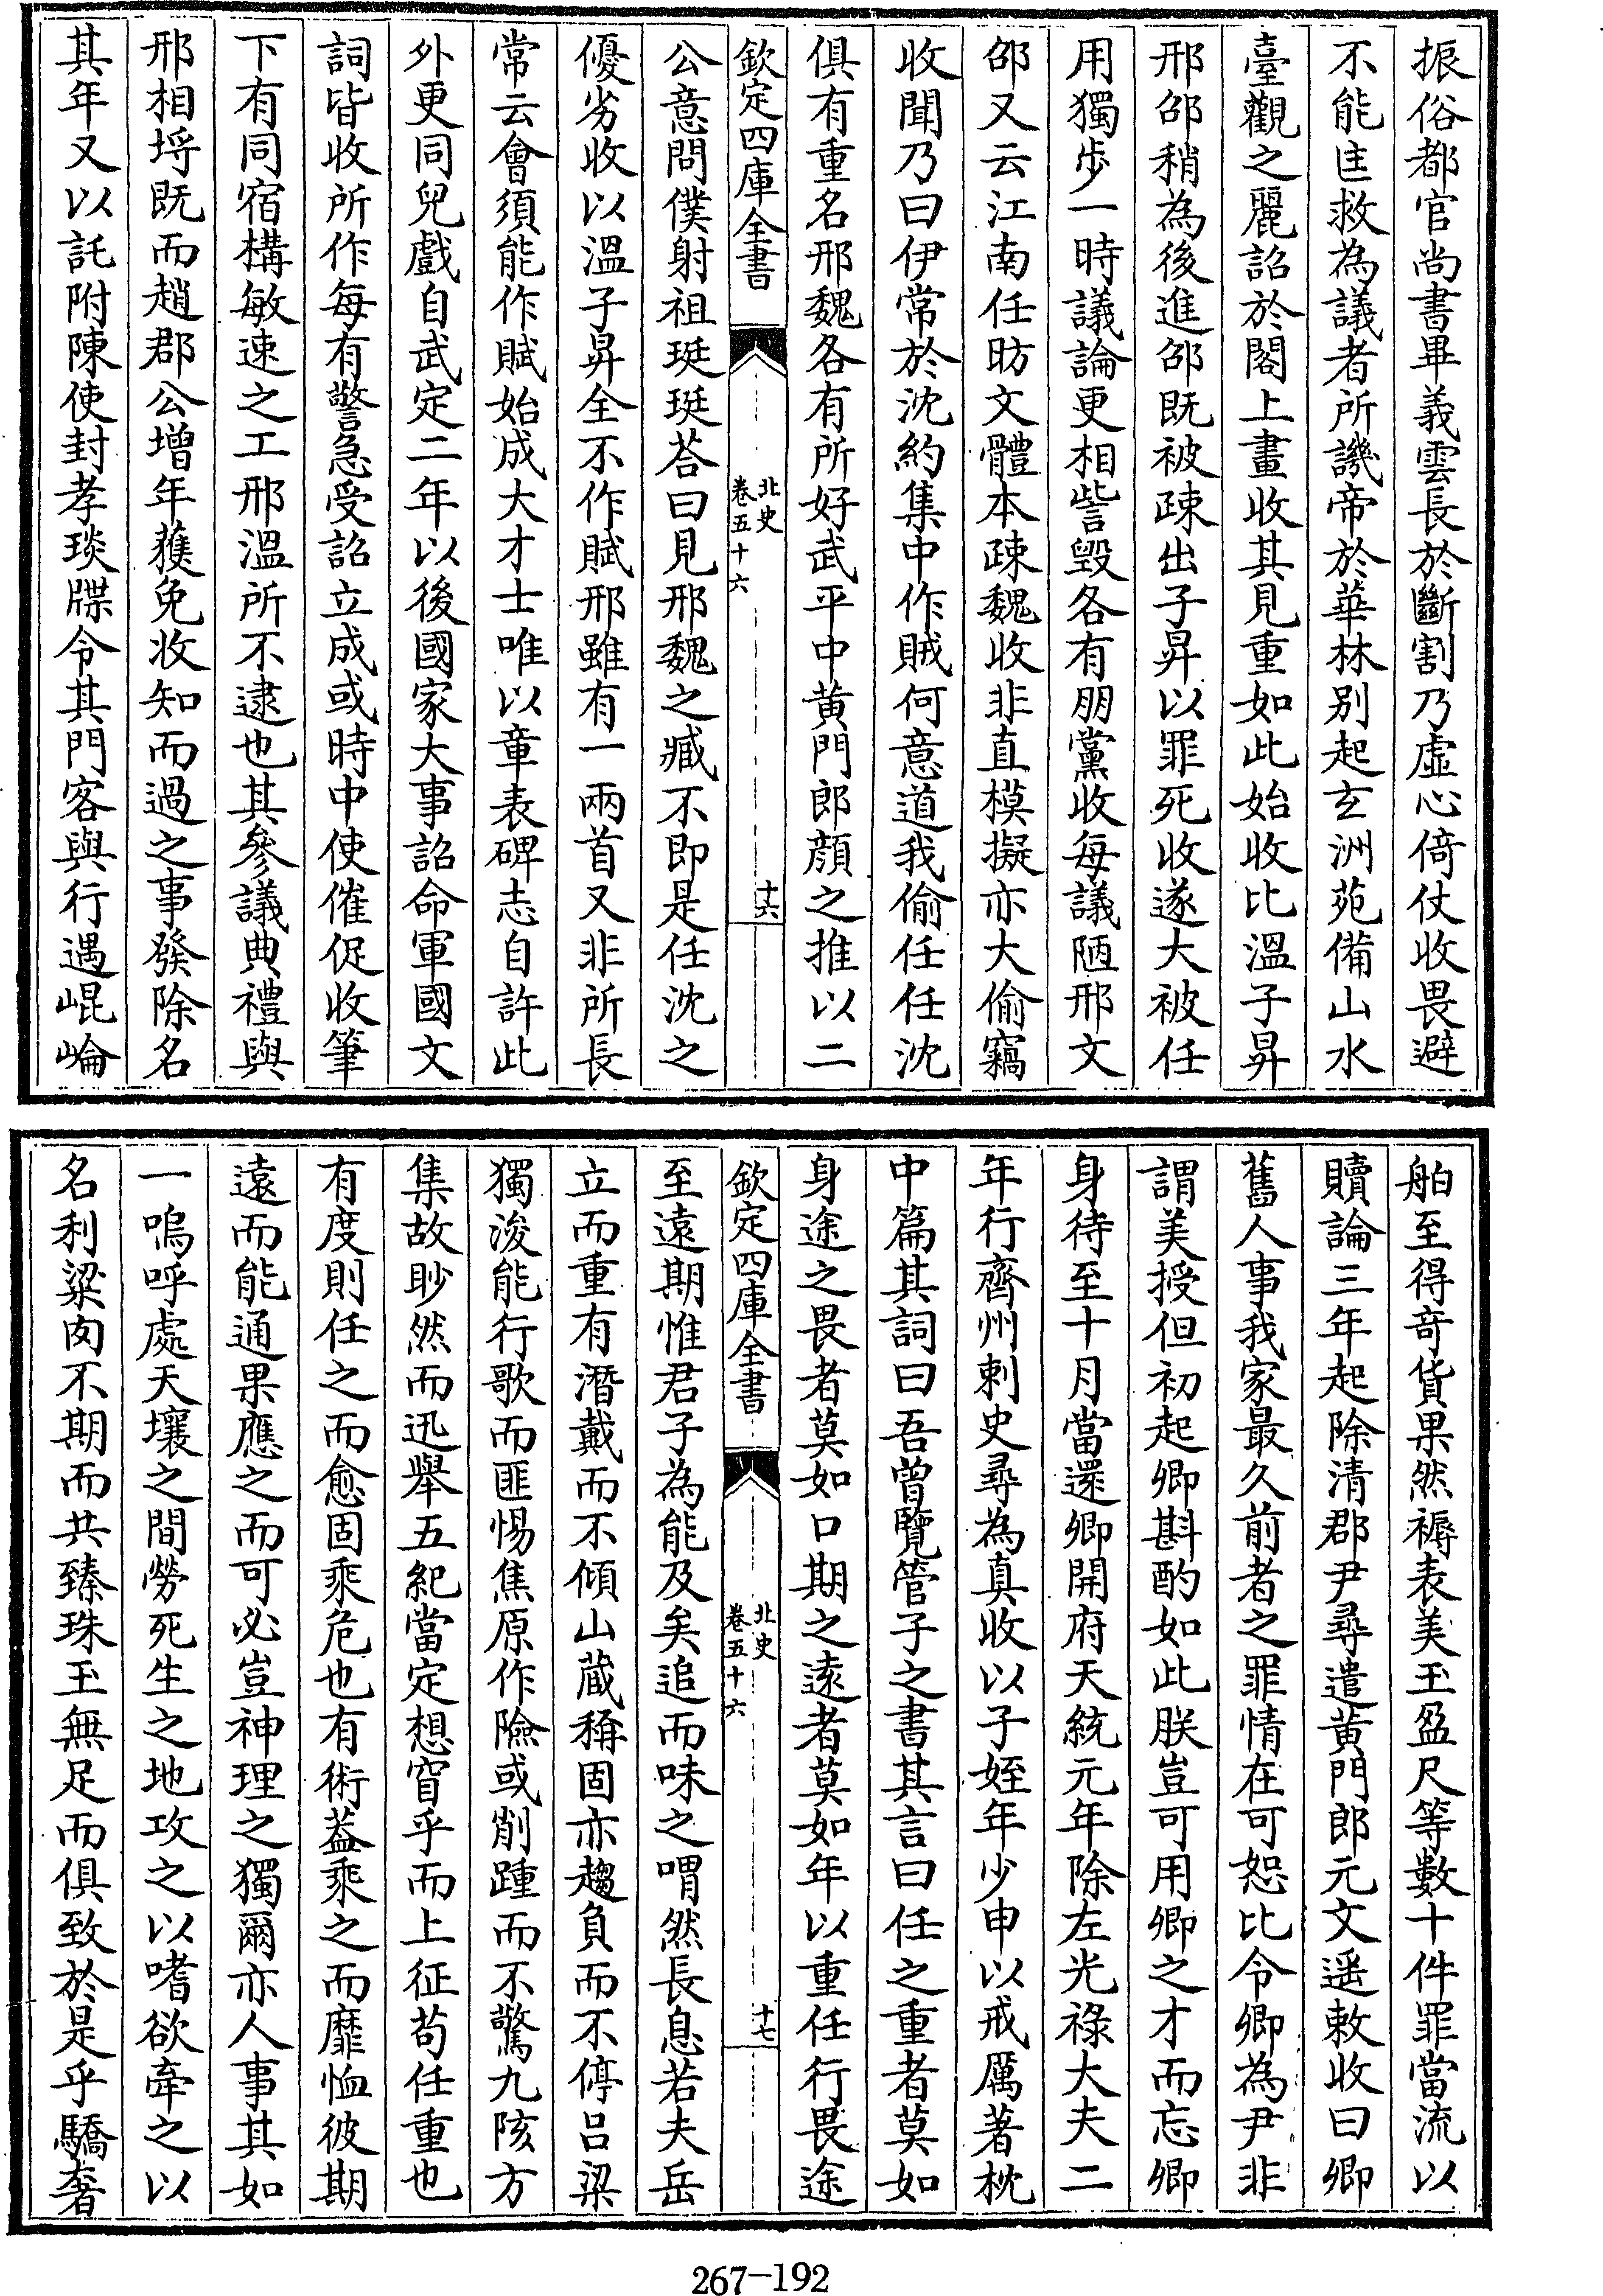 振俗都官尚書畢義雲長於斷割乃虛心倚仗收畏避
不能匡救為議者所譏帝於華林别起玄洲苑備山水
臺觀之麗詔於閣上畫收其見重如此始收比溫子昇
邢邵稍為後進邵既被疎出子昇以罪死收遂大被任
用獨步一時議論更相訾毁各有朋黨收每議陋邢文
邵又云江南任昉文體本疎魏收非直模擬亦大偷竊
收聞乃曰伊常於沈約集中作賊何意道我偷任任沈
俱有重名邢魏各有所好武平中黄門郎顔之推以二
欽定四庫全書
北史
卷五十六
十六
公意問僕射祖珽珽荅曰見邢魏之臧不即是任沈之
優劣收以溫子昇全不作賦邢雖有一兩首又非所長
常云會須能作賦始成大才士唯以章表碑志自許此
外更同兒戲自武定二年以後國家大事詔命軍國文
詞皆收所作每有警急受詔立成或時中使催促收筆
下有同宿構敏速之工邢溫所不逮也其參議典禮與
邢相埒既而趙郡公增年獲免收知而過之事發除名
其年又以託附陳使封孝琰牒令其門客與行遇崐崘
舶至得竒貨果然褥表美玉盈尺等數十件罪當流以
贖論三年起除清郡尹尋遣黄門郎元文遥敕收曰卿
舊人事我家最久前者之罪情在可恕比令卿為尹非
謂美授但初起卿斟酌如此朕豈可用卿之才而忘卿
身待至十月當還卿開府天統元年除左光祿大夫二
年行齊州刺史尋為真收以子姪年少申以戒厲著枕
中篇其詞曰吾曾覽管子之書其言曰任之重者莫如
身途之畏者莫如口期之遠者莫如年以重任行畏途
欽定四庫全書
北史
卷五十六
十七
至遠期惟君子為能及矣追而味之喟然長息若夫岳
立而重有潛戴而不傾山藏稱固亦趨負而不停吕梁
獨浚能行歌而匪惕焦原作險或削踵而不驚九陔方
集故眇然而迅舉五紀當定想窅乎而上征茍任重也
有度則任之而愈固乘危也有術蓋乘之而靡恤彼期
遠而能通果應之而可必豈神理之獨爾亦人事其如
一嗚呼處天壤之間勞死生之地攻之以嗜欲牽之以
名利粱肉不期而共臻珠玉無足而俱致於是乎驕奢
267-192